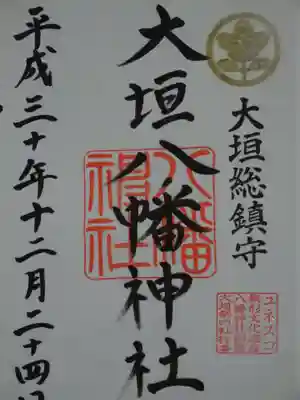 大垣総鎮守
大垣八幡神社
八幡
神社
ユネスコ
無形文化遺産
平成三十年十二月二十四日